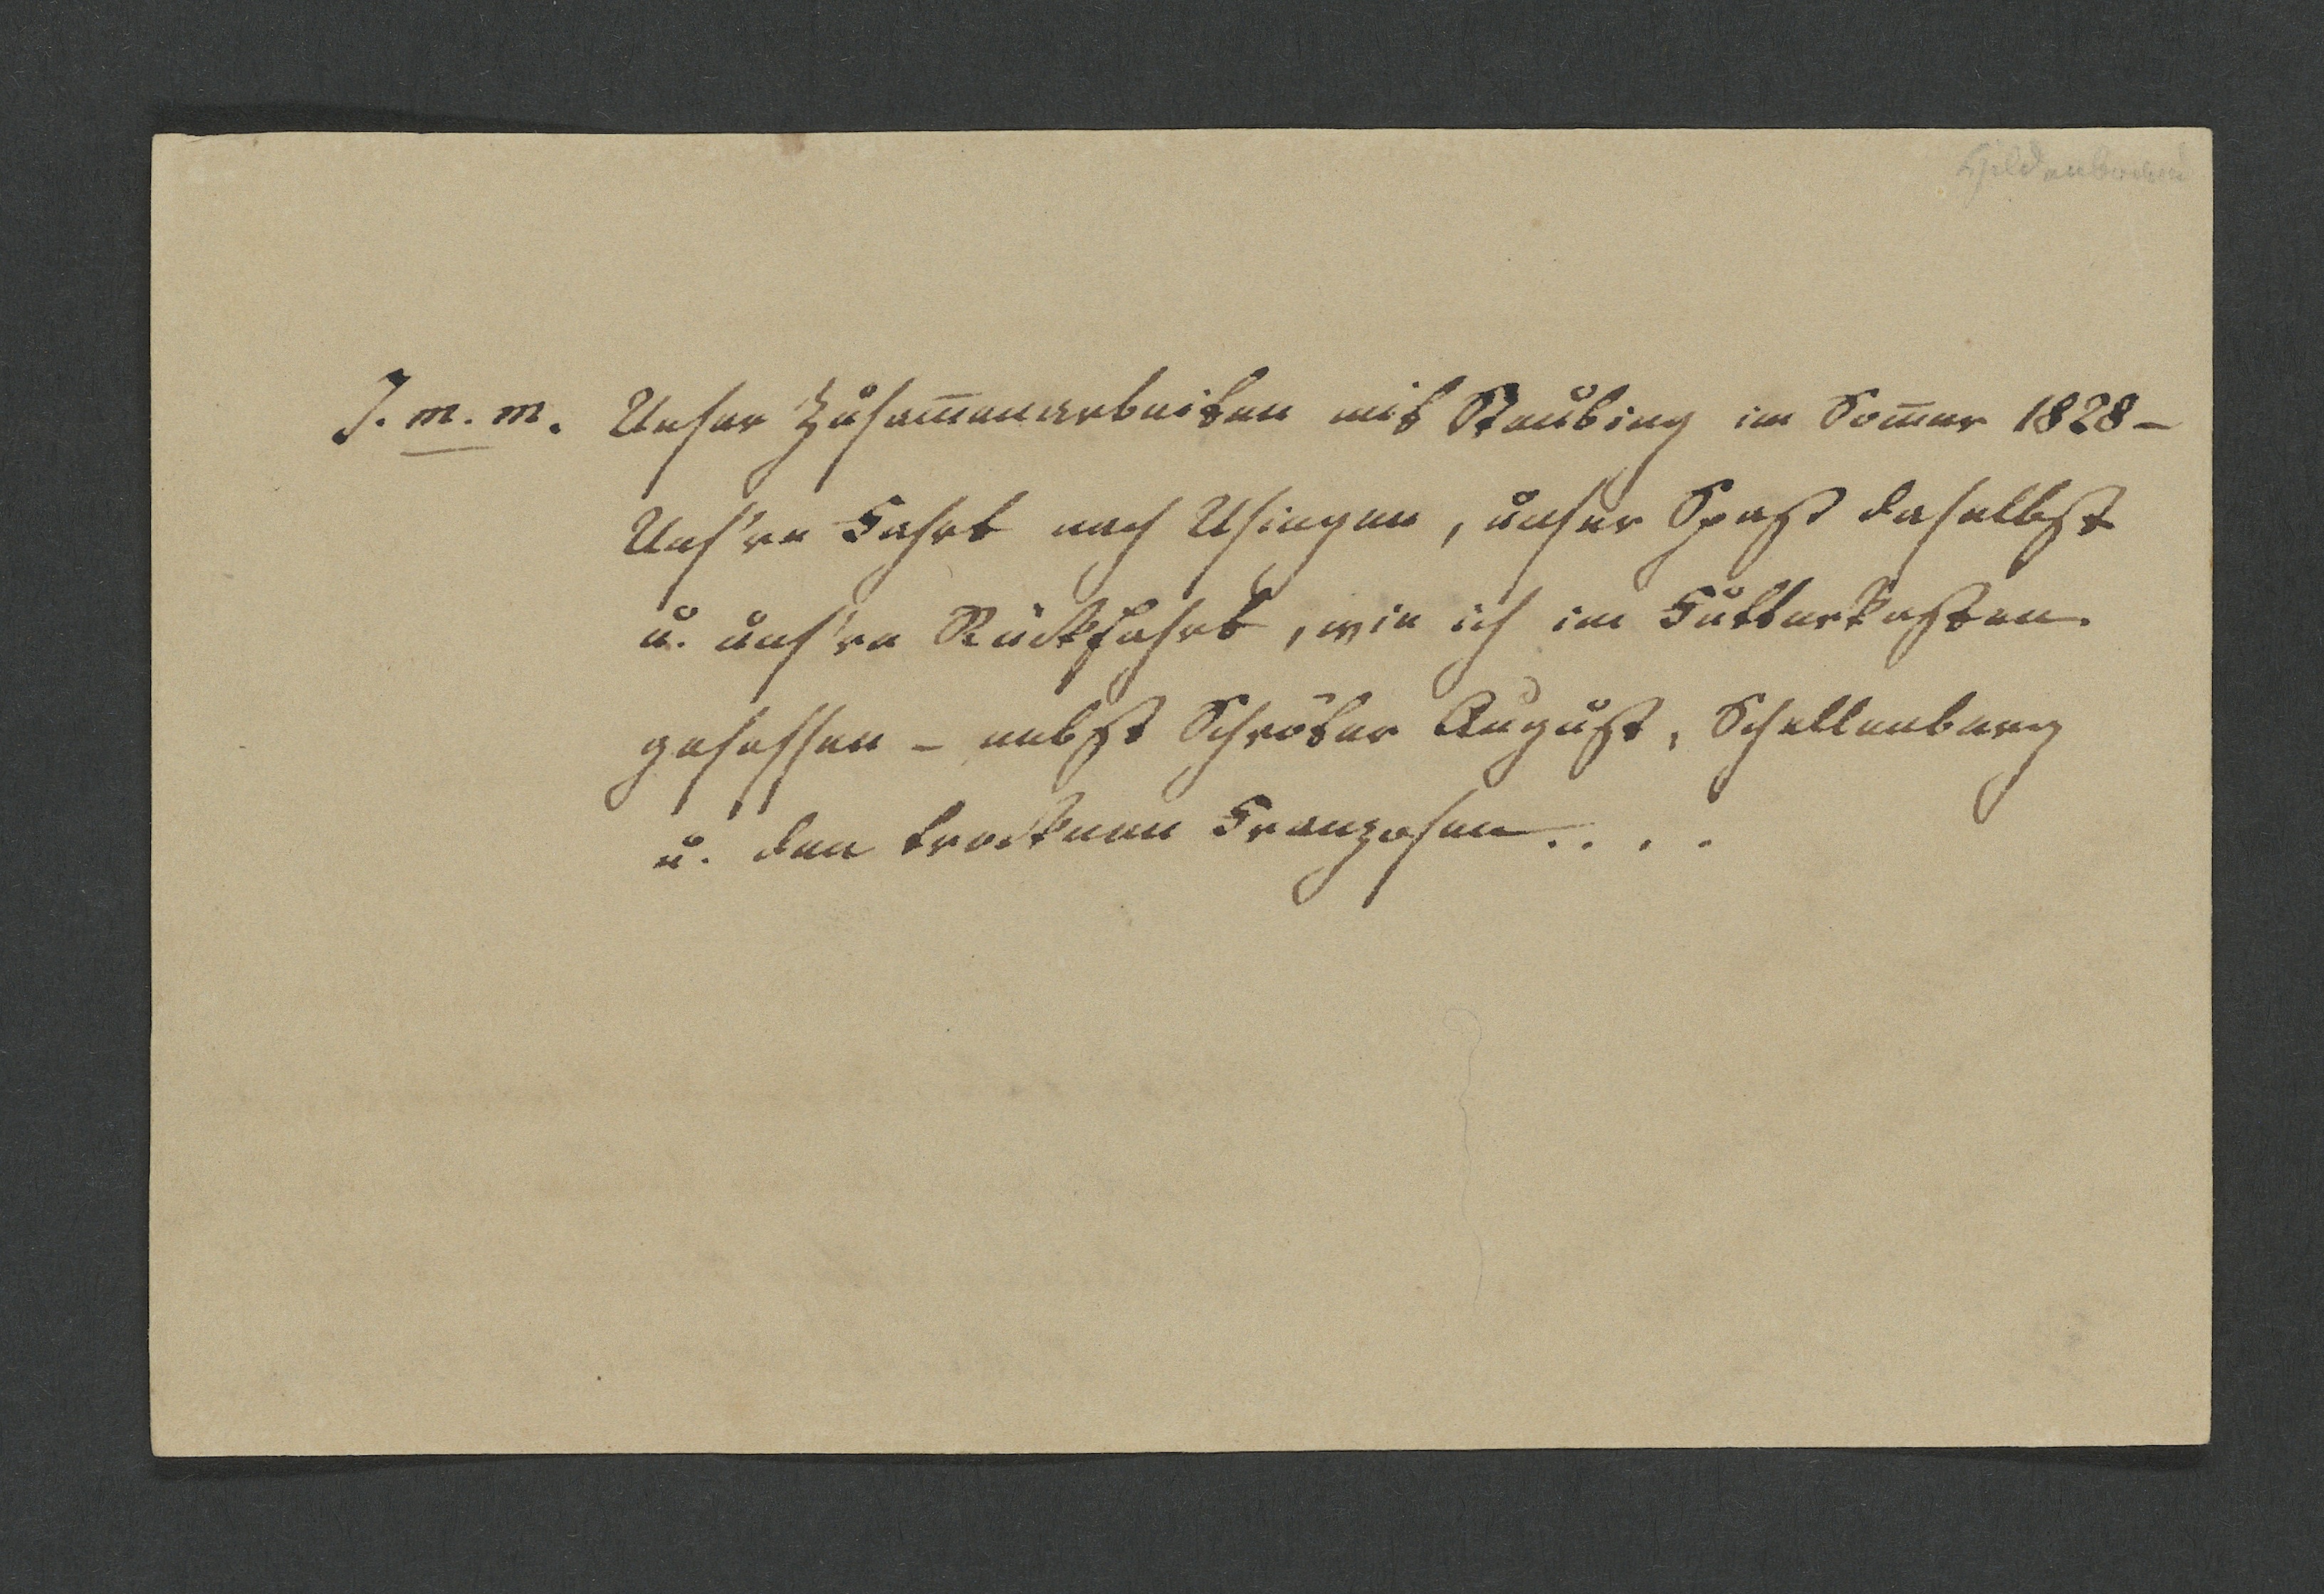 J. m. m. Unser Zusam̅enarbeiten mit Staubing im Som̅er 1828 –
Uns're Fahrt nach Usingen, unser Spaß daselbst
u. uns're Rückfahrt, wie ich im Futterkasten
gesessen – nebst Schröter August, Schellenberg
u. den trocknen Franzosen....